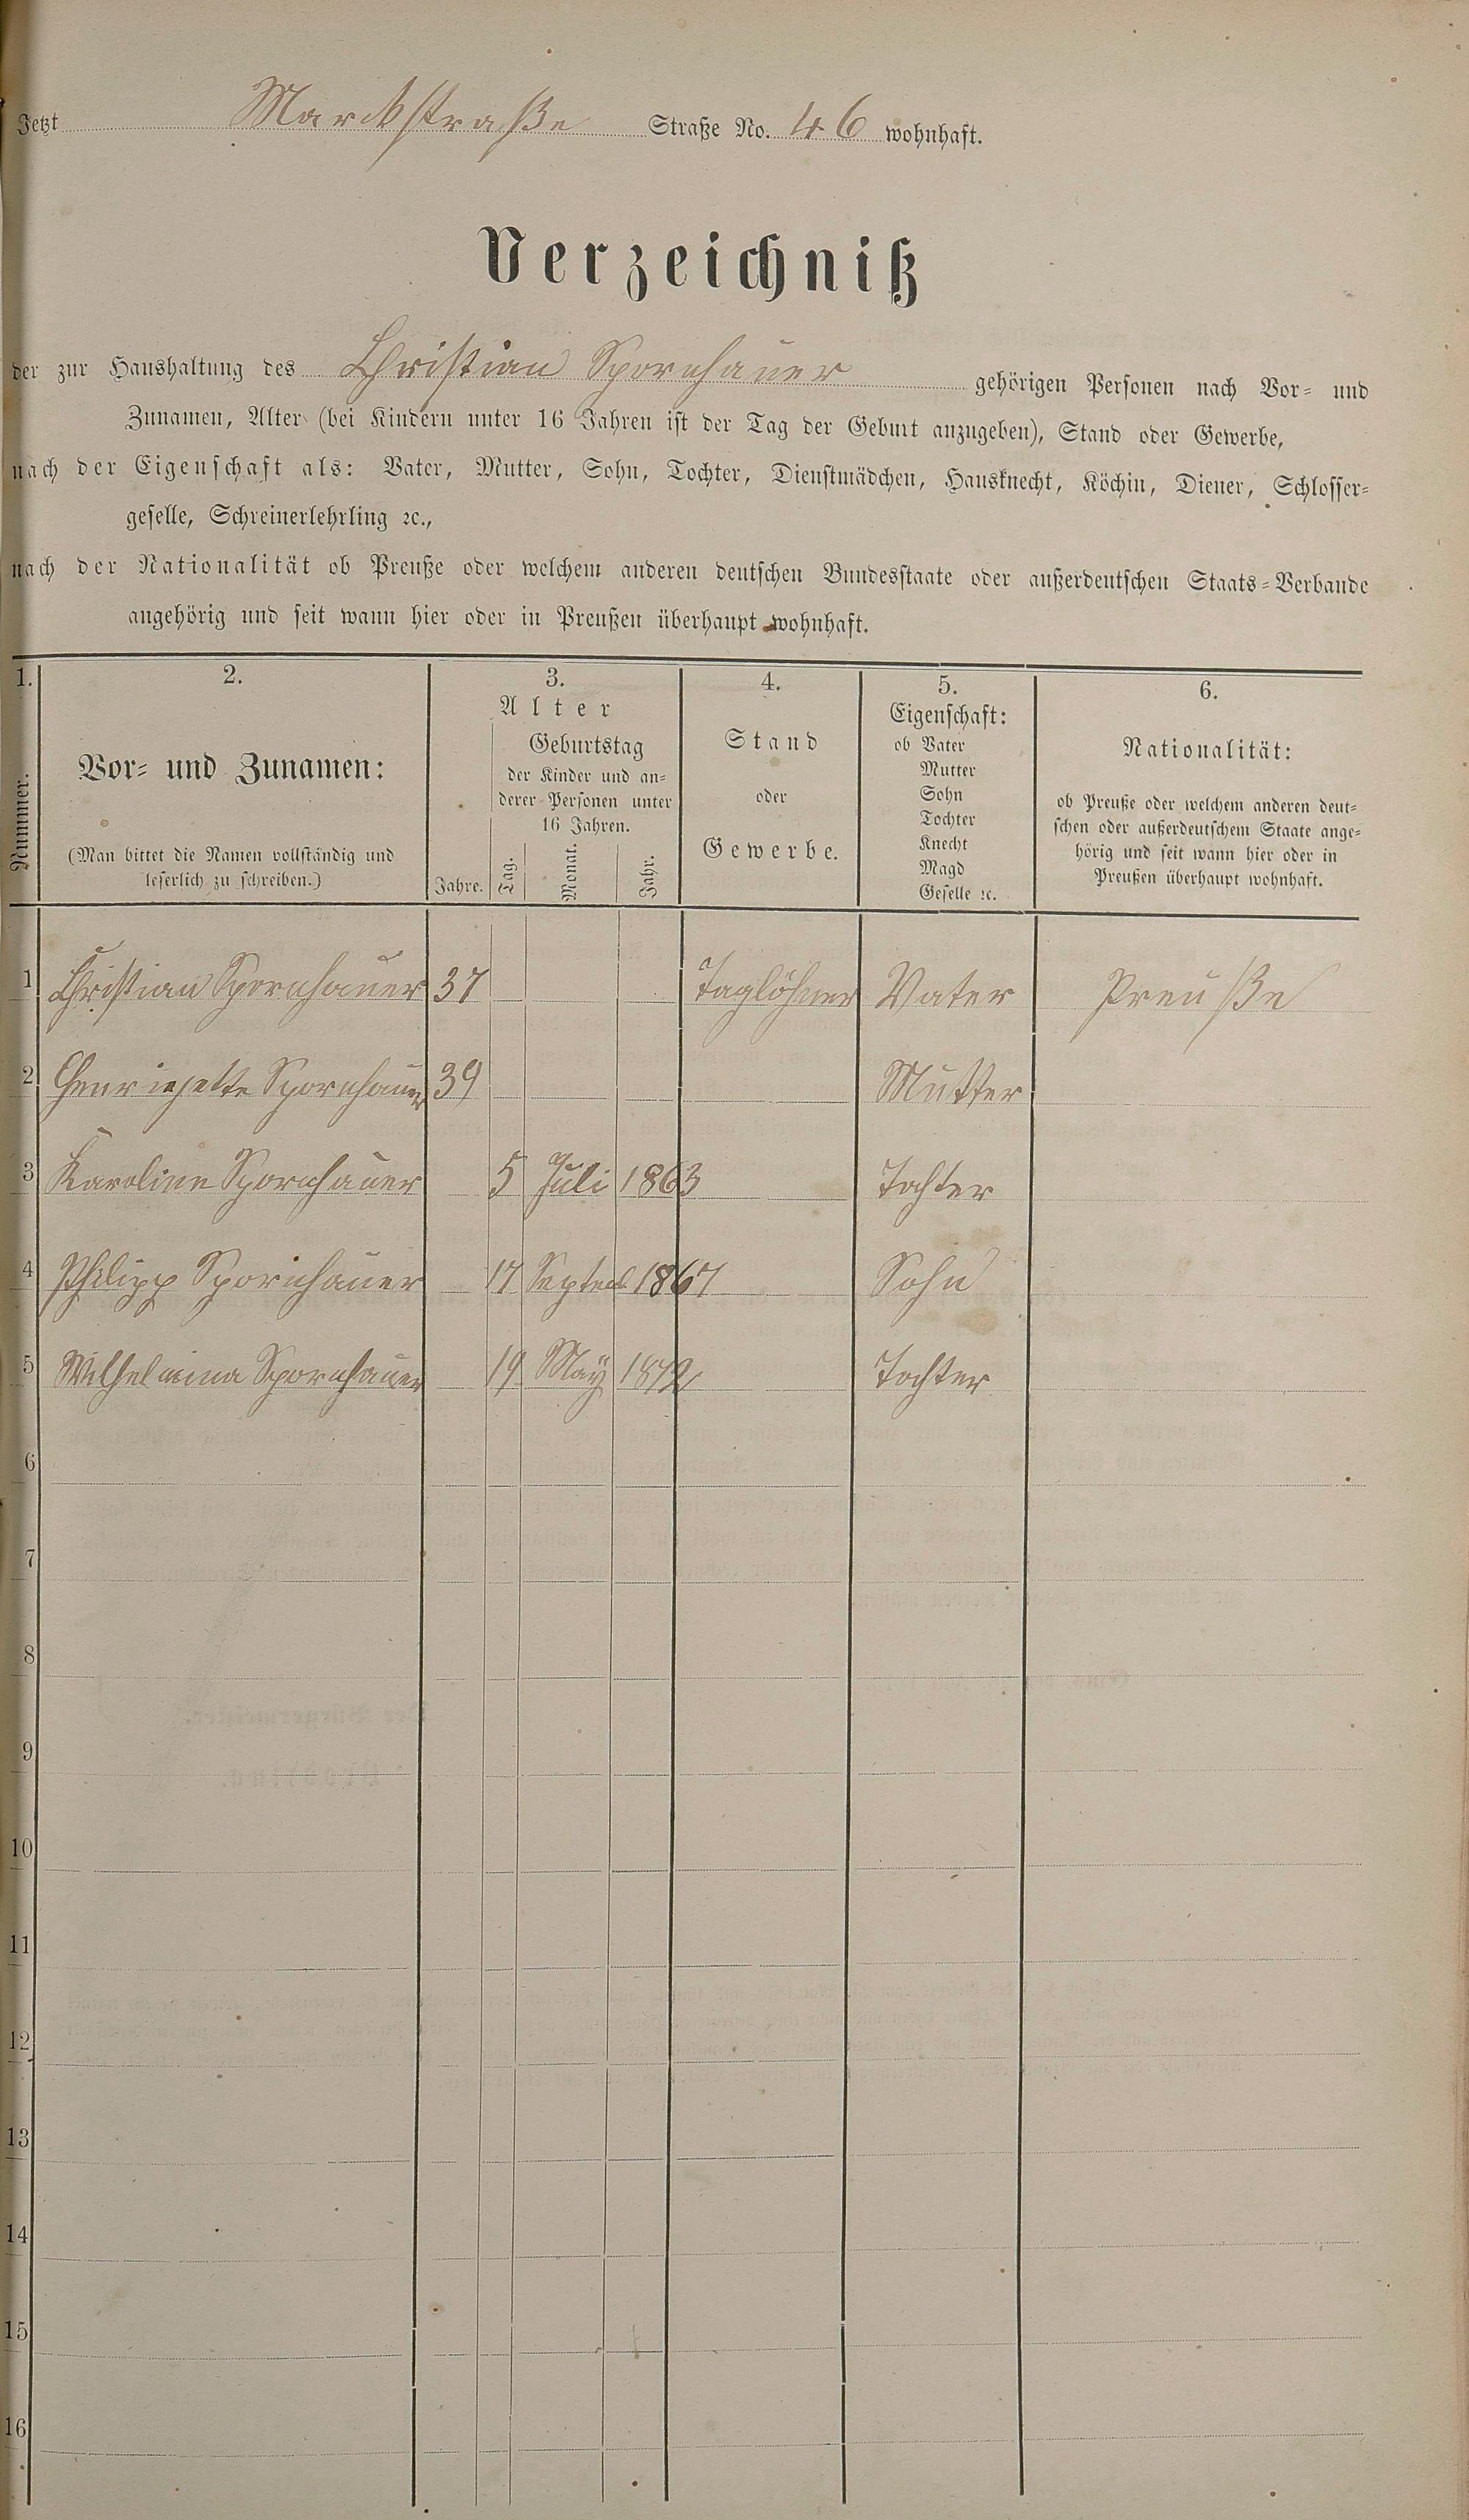 Jetzt Marckstraße Straße No. 46 wohnhaft.
Verzeichniß
der zur Haushaltung des Christian Spornhauer gehörigen Personen nach Vor- und
Zunamen, Alter (bei Kindern unter 16 Jahren ist der Tag der Geburt anzugeben), Stand oder Gewerbe,
nach der Eigenschaft als: Vater, Mutter, Sohn, Tochter, Dienstmädchen, Hausknecht, Köchin, Diener, Schlosser-
geselle, Schreinerlehrling ꝛc.,
nach der Nationalität ob Preuße oder welchem anderen deutschen Bundesstaate oder außerdeutschen Staats-Verbande
angehörig und seit wann hier oder in Preußen überhaupt wohnhaft.
1.
Nummer.
2.
Vor- und Zunamen:
(Man bittet die Namen vollständig und
leserlich zu schreiben.)
3.
Alter
Geburtstag
der Kinder und an-
derer Personen unter
16 Jahren.
Jahre. Tag. Monat. Jahr.
4.
Stand
oder
Gewerbe.
5.
Eigenschaft:
ob Vater
Mutter
Sohn
Tochter
Knecht
Magd
Geselle ꝛc.
6.
Nationalität:
ob Preuße oder welchem anderen deut-
schen oder außerdeutschem Staate ange-
hörig und seit wann hier oder in
Preußen überhaupt wohnhaft.
1 Christian Spornhauer 37 Taglöhner Vater Preuße
2 Spornhauer 39 Mutter
3 Karoline Spornhauer 5 Juli 1863 Tochter
4 Philipp Spornhauer 17 1867 Sohn
5 Wilhelmina Spornhauer 19 May 1872 Tochter
6
7
8
9
10
11
12
13
14
15
16